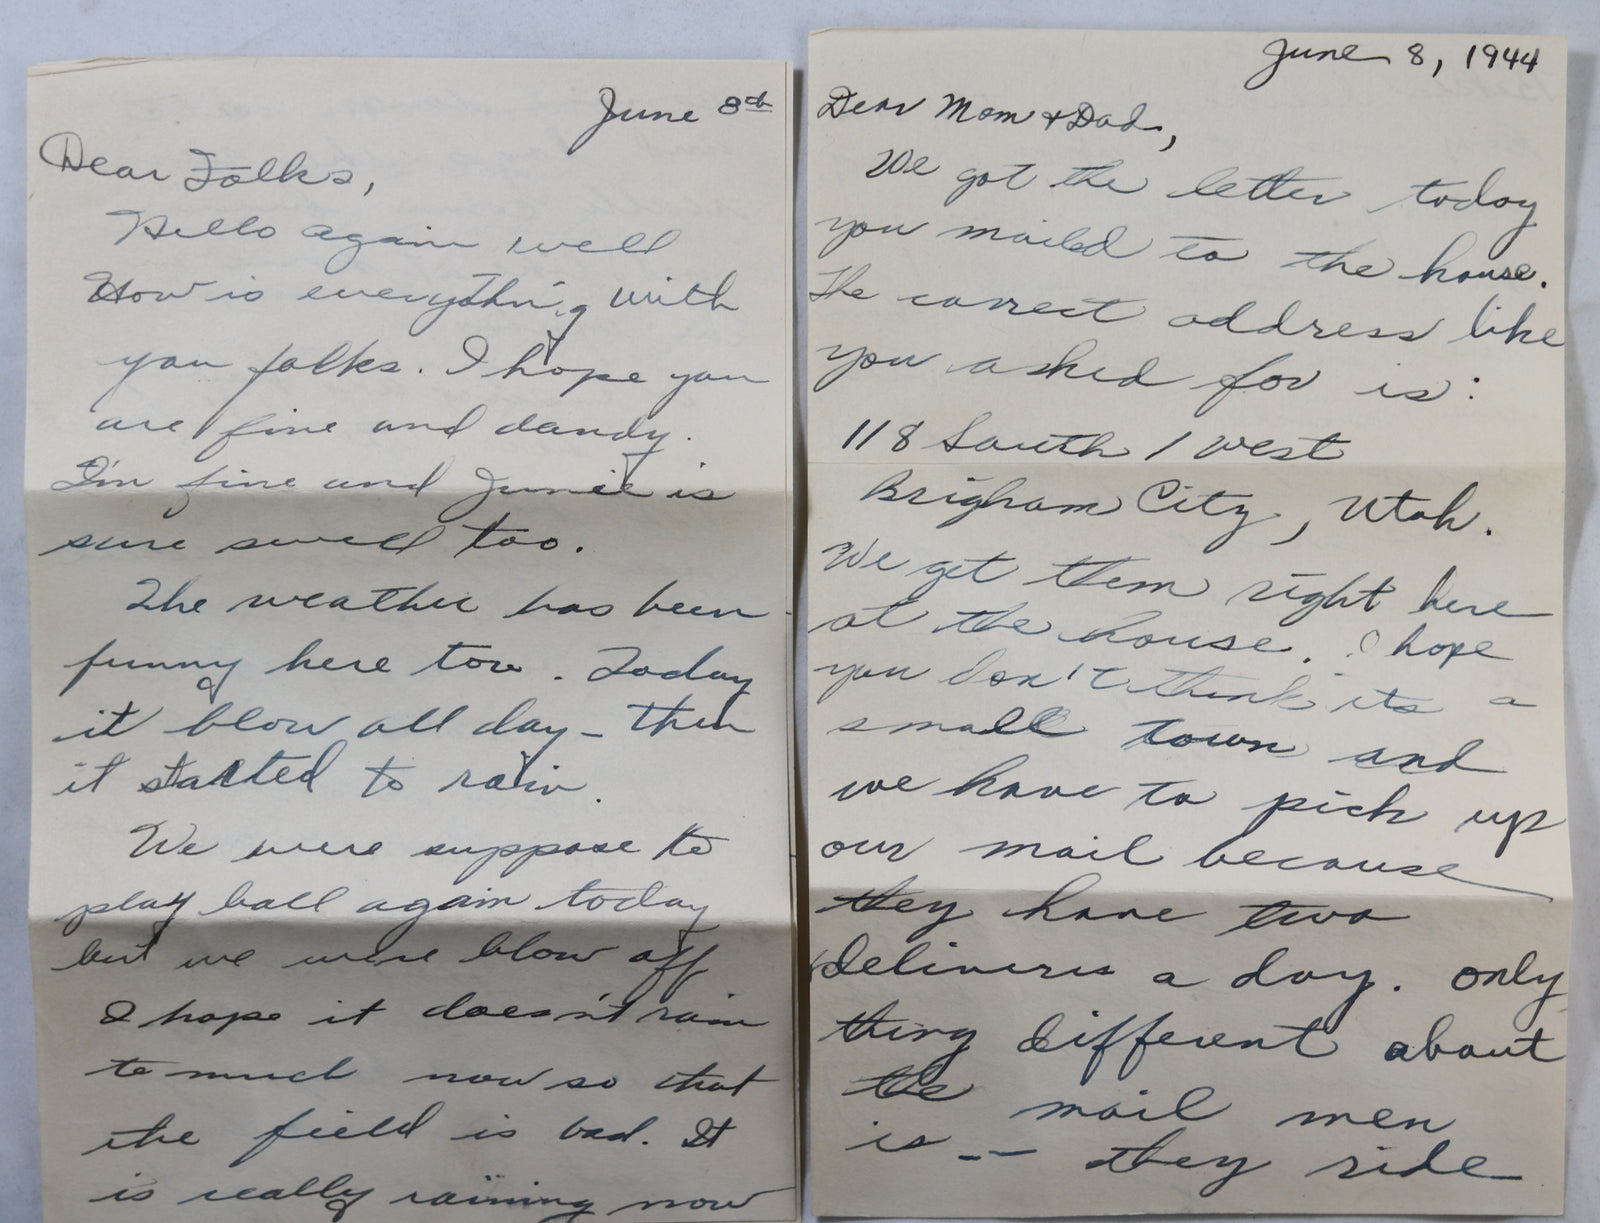 June 8th
Dear Folks,
Hello again well
How is everything with
you folks. I hope you
are fine and dandy.
I'm fine and Junie is
sure swell too.
The weather has been
funny here too. Today
it blow all day - then
it started to rain.
We were suppose to
play ball again today
but we were blow off
I hope it doesn't rain
to much now so that
the field is bad. It
is really raining now
June 8, 1944
Dear Mom & Dad,
We got the letter today
you mailed to the house.
The correct address like
you asked for is:
118 South 1 West
Brigham City, Utah.
We get them right here
at the house. I hope
you don't think its a
small town and
we have to pick up
our mail because
they have two
deliveries a day. Only
thing different about
the mail men
is -- they ride